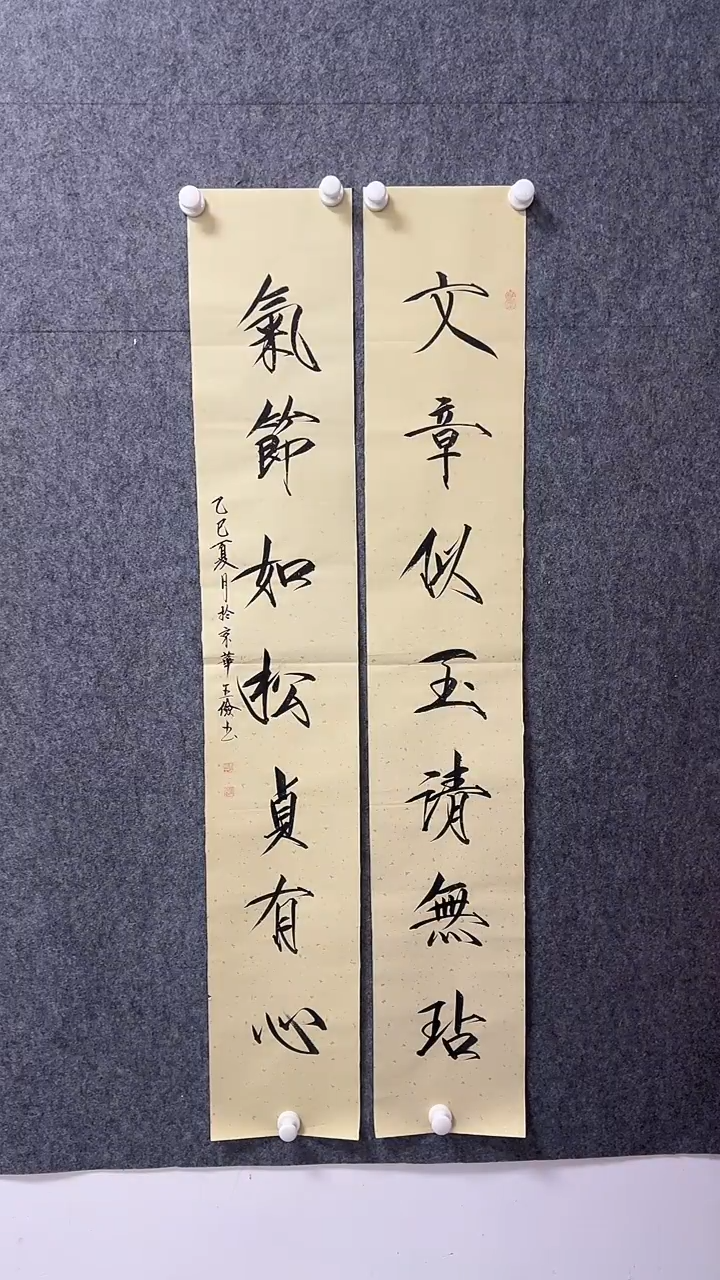 文章似玉请無玷
氣節如松貞有心
乙巳夏月於京華王儉书